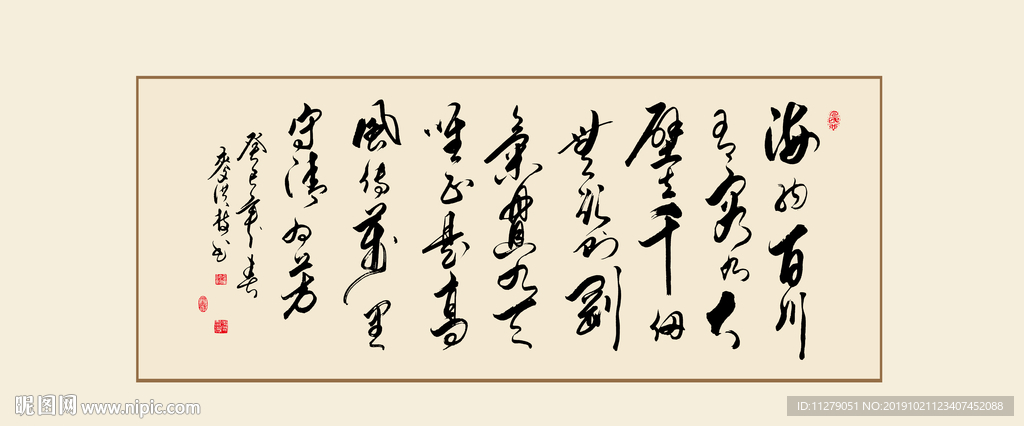 海納百川
有容乃大
壁立千仞
無欲則剛
氣貫九天
唯正是高
風傳萬里
守清為芳
癸巳年春
洪枝书
昵图网 www.nipic.com
ID:11279051 NO:20191021123407452088